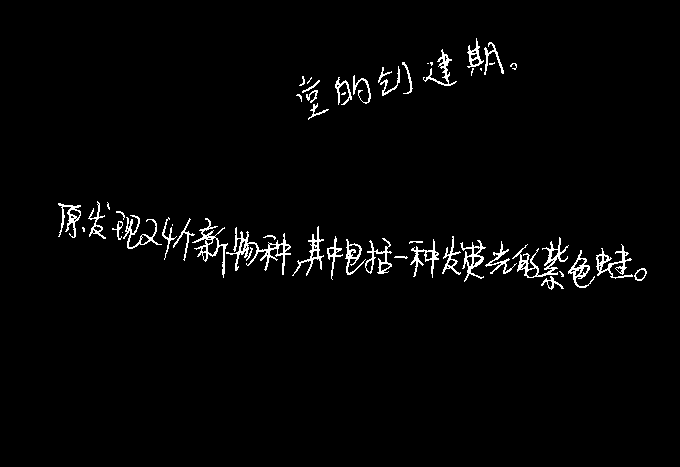 堂的创建期。
原发现24个新物种,其中包括一种发荧光的紫色蛙。